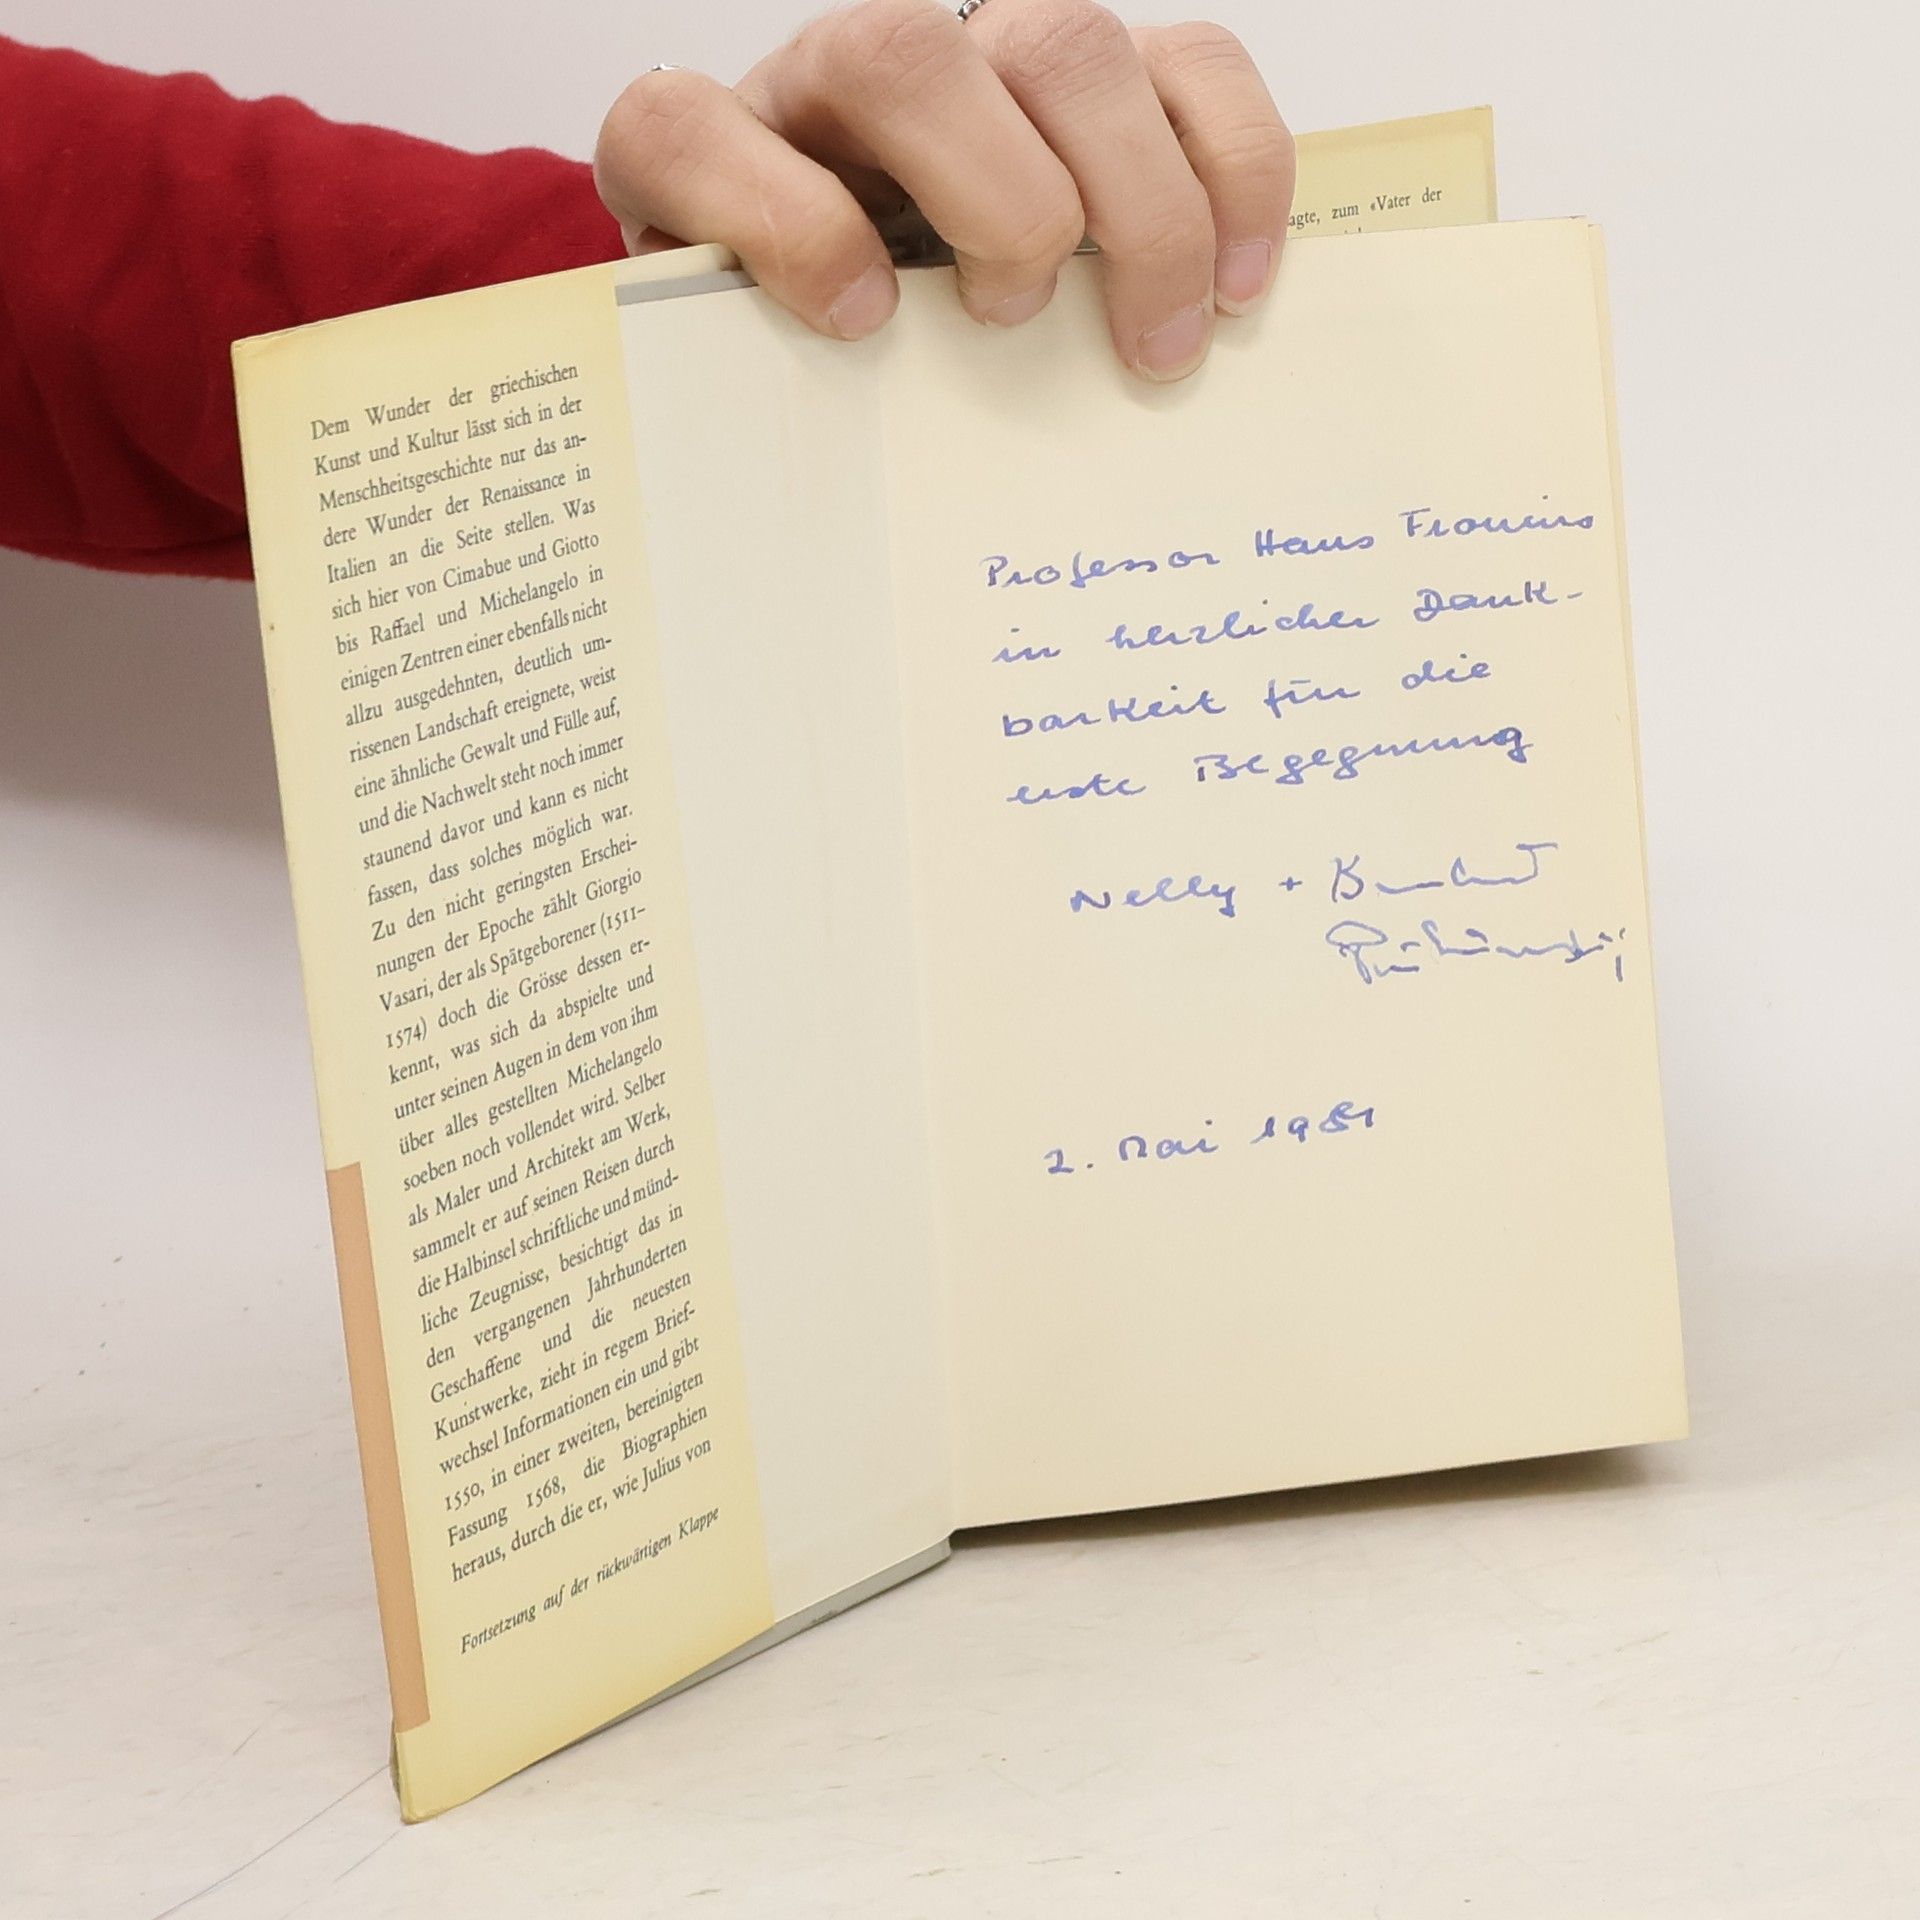 Dem Wunder der griechischen
Kunst und Kultur lässt sich in der
Menschheitsgeschichte nur das an-
dere Wunder der Renaissance in
Italien an die Seite stellen. Was
sich hier von Cimabue und Giotto
bis Raffael und Michelangelo in
einigen Zentren einer ebenfalls nicht
allzu ausgedehnten, deutlich um-
rissenen Landschaft ereignete, weist
eine ähnliche Gewalt und Fülle auf,
und die Nachwelt steht noch immer
staunend davor und kann es nicht
fassen, dass solches möglich war.
Zu den nicht geringsten Erschei-
nungen der Epoche zählt Giorgio
Vasari, der als Spätgeborener (1511–
1574) doch die Grösse dessen er-
kennt, was sich da abspielte und
unter seinen Augen in dem von ihm
über alles gestellten Michelangelo
soeben noch vollendet wird. Selber
als Maler und Architekt am Werk,
sammelt er auf seinen Reisen durch
die Halbinsel schriftliche und münd-
liche Zeugnisse, besichtigt das in
den vergangenen Jahrhunderten
Geschaffene und die neuesten
Kunstwerke, zieht in regem Brief-
wechsel Informationen ein und gibt
1550, in einer zweiten, bereinigten
Fassung 1568, die Biographien
heraus, durch die er, wie Julius von
Fortsetzung auf der rückwärtigen Klappe
agte, zum «Vater der
Professor Hans Fronius
in herzlicher Dank-
barkeit für die
erste Begegnung
Nelly +
2. Mai 1981